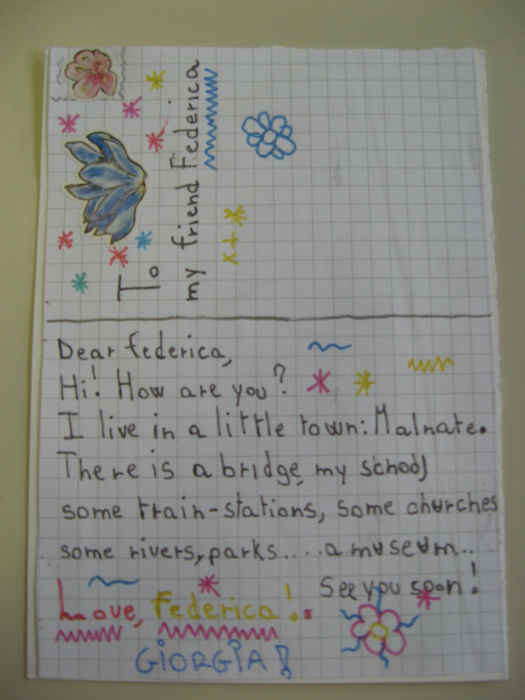 To
my friend Federica
Dear federica,
Hi! How are you?
I live in a little town: Malnate.
There is a bridge, my school
some train-stations, some churches
some rivers, parks....a museum..
See you soon!
Love, Federica!.
GiORGiA!